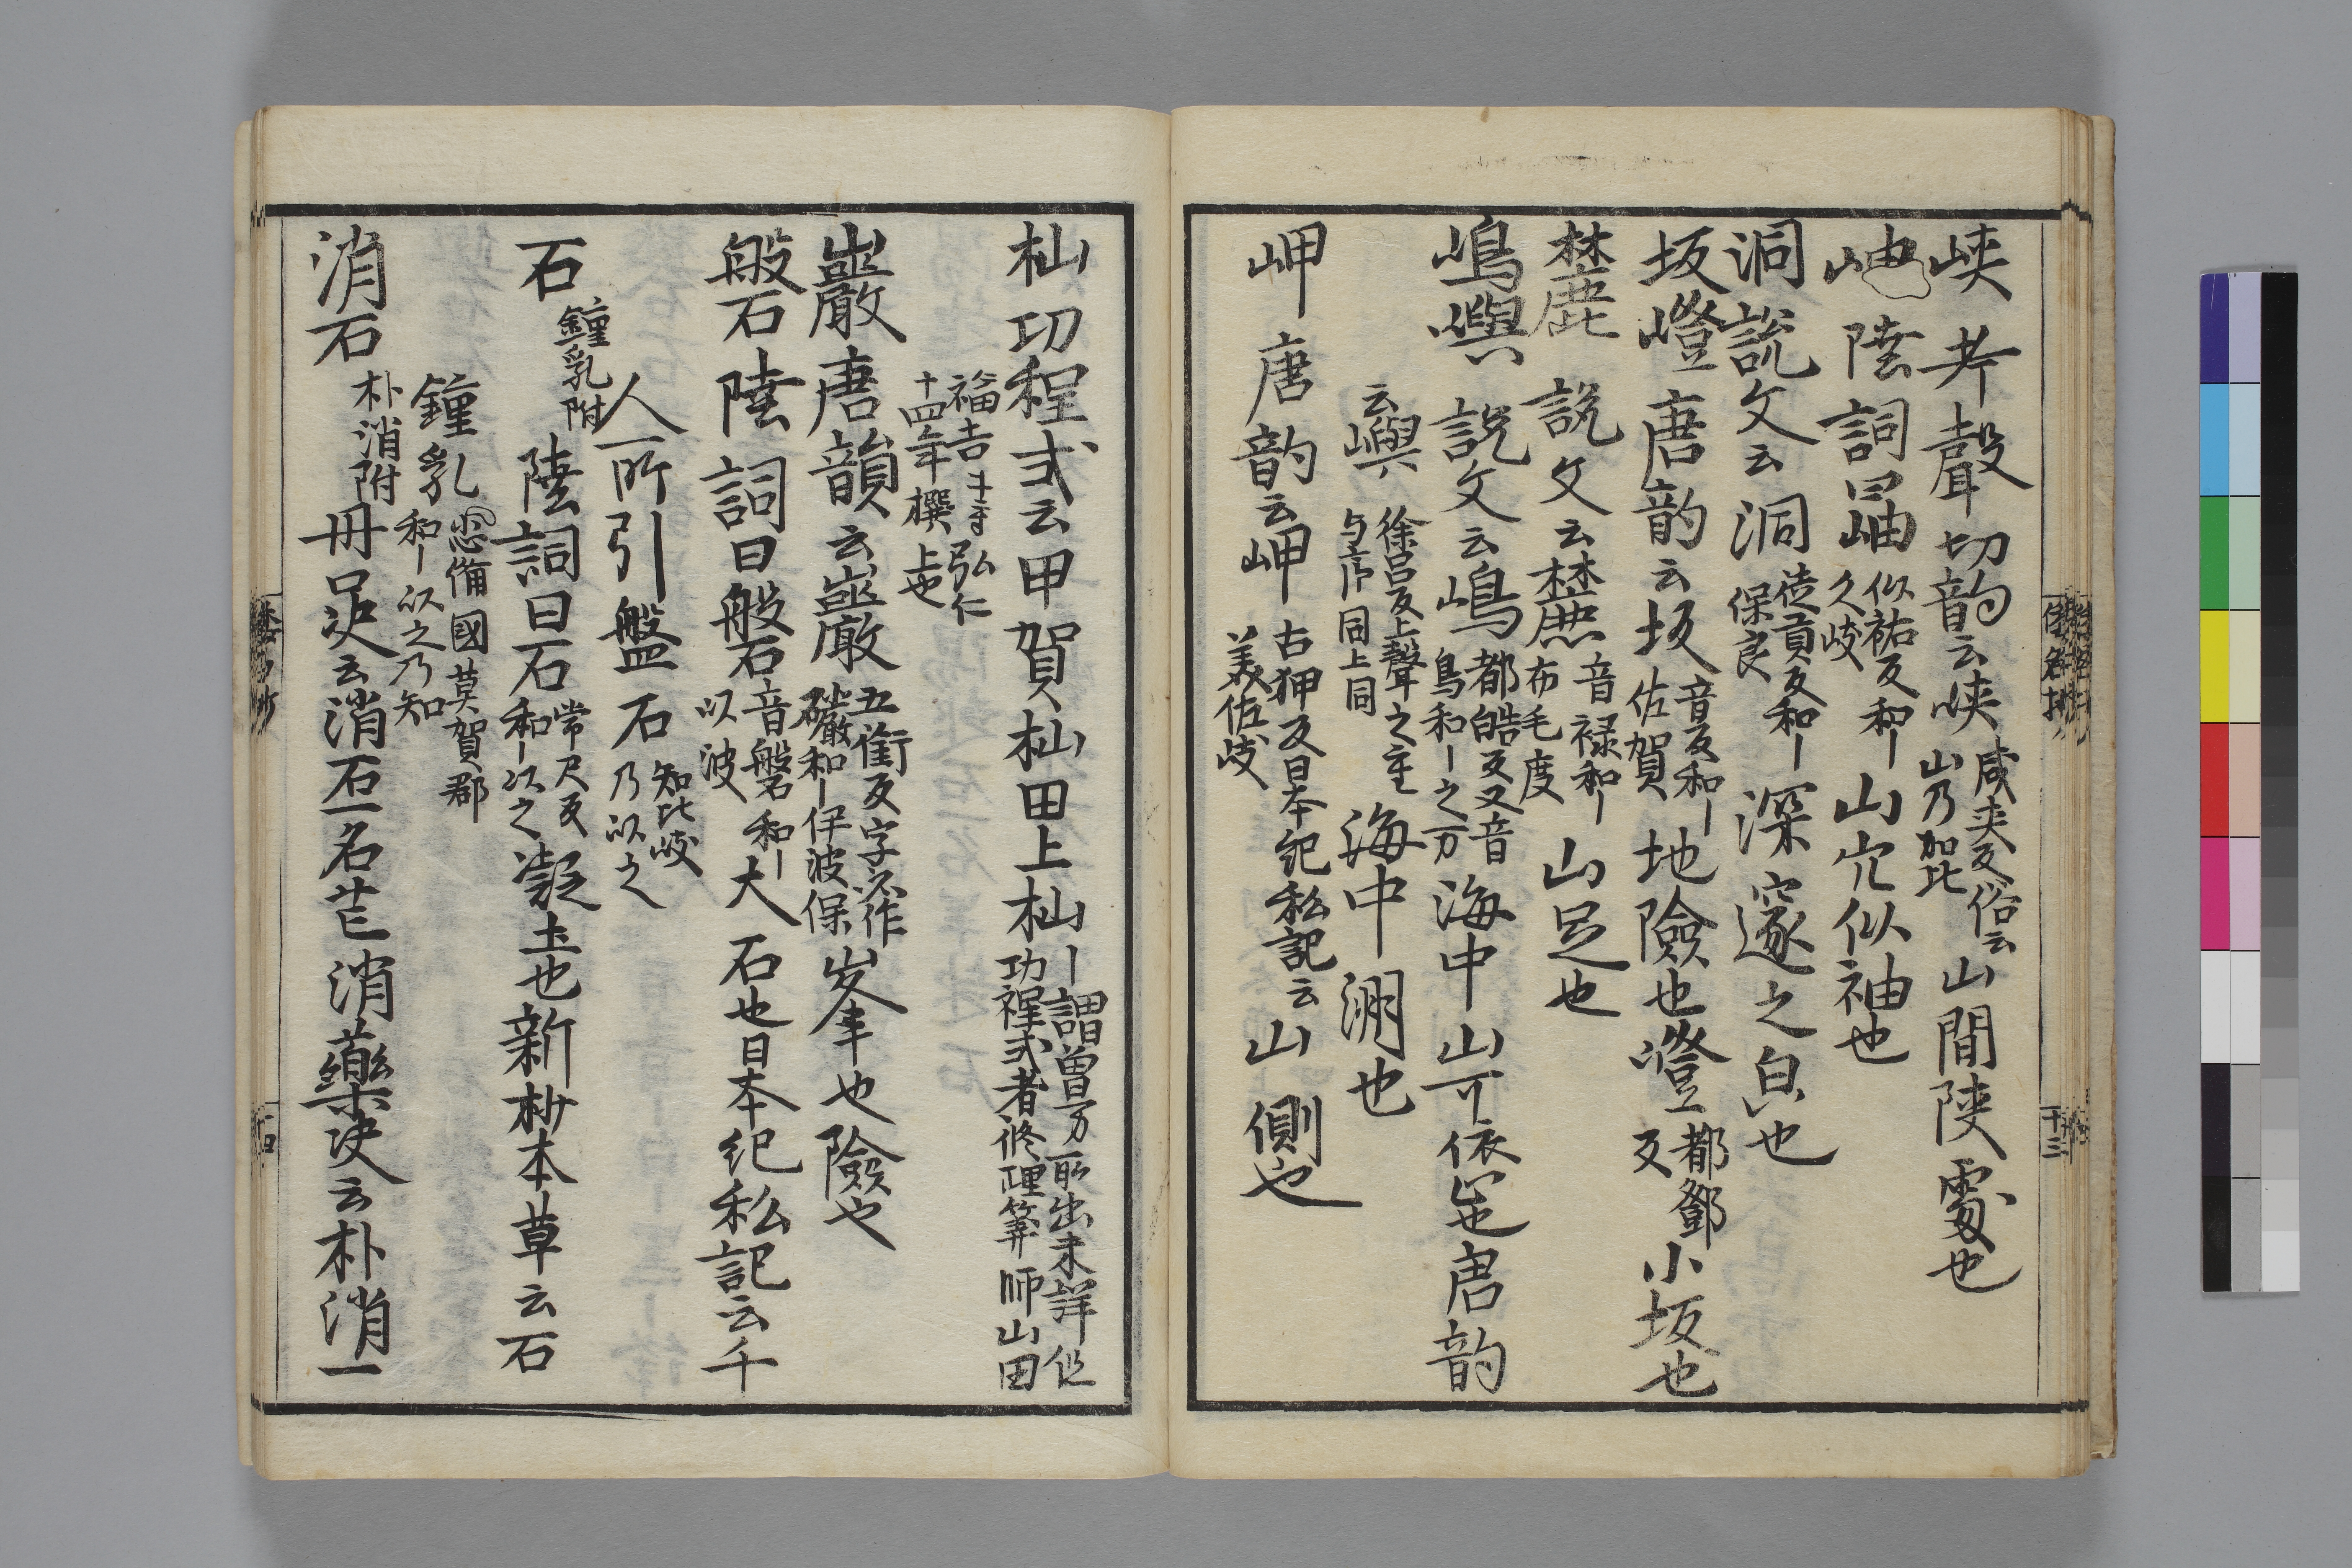 峡 考聲切韵云峡 咸夾反俗云
山乃加比 山間陜處也
岫 陸詞曰岫 似祐反和ー
久岐 山穴似袖也
洞 説文云洞 徒貢反和ー
保良 深邃之皃也
坂嶝 唐韵云坂 音反和ー
佐賀 地險也嶝 都鄧
反 小坂也
麓 説文云麓 音禄和ー
布毛度 山足也
嶋嶼 説文云嶋 都皓反又音
鳥和ー之万 海中山可依㞐也唐韵
云嶼 徐呂反上聲之重
与序同上同 海中洲也
岬 唐韵云岬 古狎反日本紀私記云
美佐岐 山側也
杣 功程式云甲賀杣田上杣 ー謂曽万所出未詳但
功程式者修理算師山田
福吉ホ 弘仁
十四年撰上也
巖 唐韻云巖 五衘反字亦作
礹和ー伊波保 峯也險也
磐石 陸詞曰磐石 音盤和ー
以波 大石也日本紀私記云千
人所引盤石 知比岐
乃以之
石 鐘乳附 陸詞曰石 常尺反
和ー以之 凝土也新抄本草云石
鐘乳 備國莫賀郡
和ー以之乃知
消石 朴消附 丹口决云消石一名芒消藥决云朴消一
十三